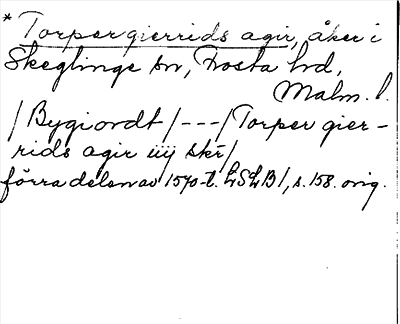 * Torpergierrids agir, åker i
Skeglinge sn, Frosta hd,
Malm. l.
/Bygiordt/---/Torper gier-
rids agir iiij skr/
förra delen av 1570-t. LSLB 1, s. 158. orig.